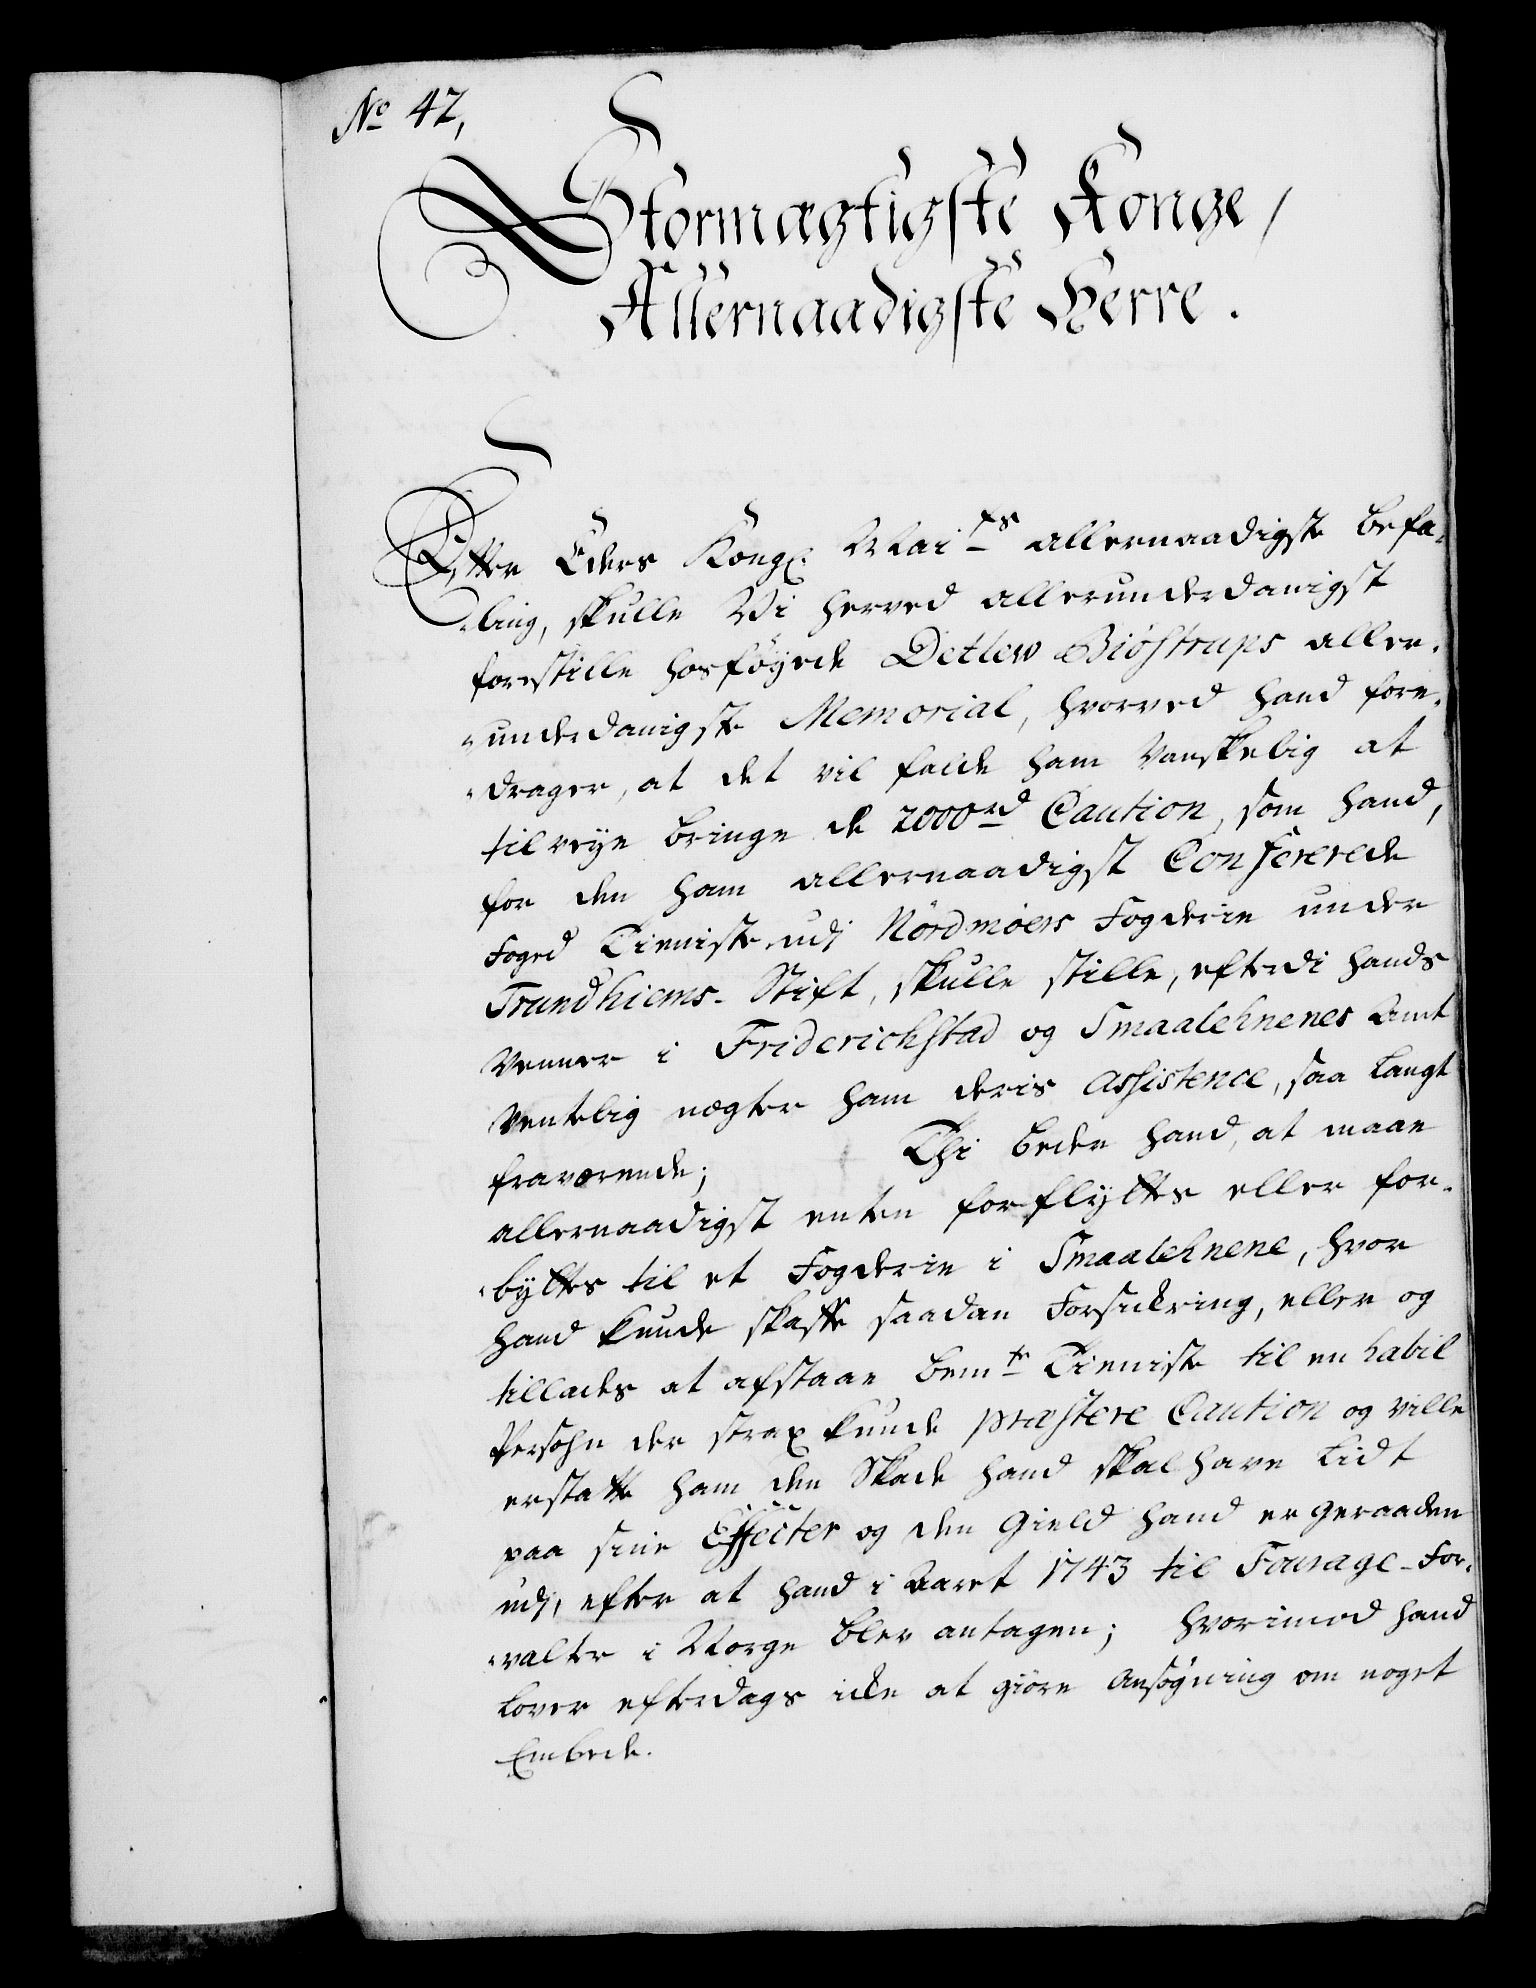 No 42,
Stormægtigste Konge,
Allernaadigste Herre.
Efter Eders Kongl. Maits allernaadigste befa-
ling, skulle Vi herved allerunderdanigst
forestille hosföyede Detlew Biöstrups aller-
underdanigste Memorial, hvorved hand fore-
drager, at det vil falde ham vanskelig at
tilveye bringe de 2000rd Caution, som hand,
for den ham allernaadigst Confererede
Foged Tieniste udj Nordmöers Fogderie under
Trundhiems-Stift, skulle stille, efterdi hands
Venner i Friderichstad og Smaalehnenes Amt
ventelig nægter ham deris Assistence, saa langt
fraværende; Thi beder hand, at maae
allernaadigst enten forflyttes eller for-
byttes til et Fogderie i Smaalehnene, hvor
hand kunde skaffe saadan Forsickring, eller og
tillades at afstaae bemte Tieniste til en habil
Persohn der strax kunde præstere Caution og ville
erstatte ham den Skade hand skal have lidt
paa sine Effecter og den Gield hand er geraaden
udj, efter at hand i Aaret 1743 til Fourage-For-
valter i Norge blev antagen; hvorimod hand
lover efterdags icke at giöre Ansögning om noget
Embede.